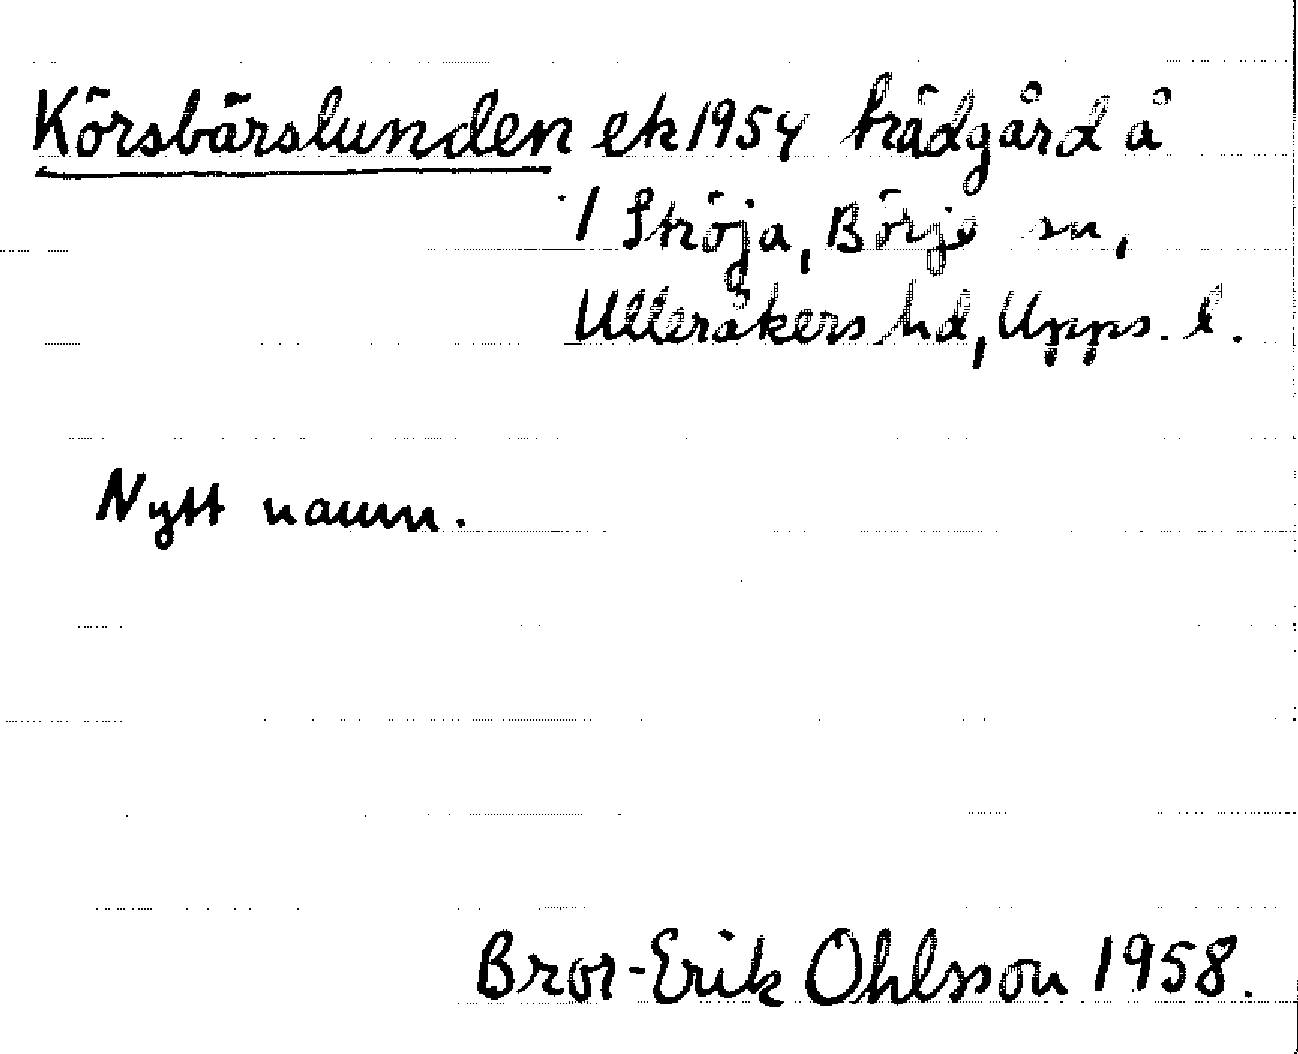 Körsbärslunden ek 1954 trädgård å
1 Ströja, Börje sn,
Ulleråkers hd, Upps. l.
Nytt namn.
Bror-Erik Ohlsson 1958.